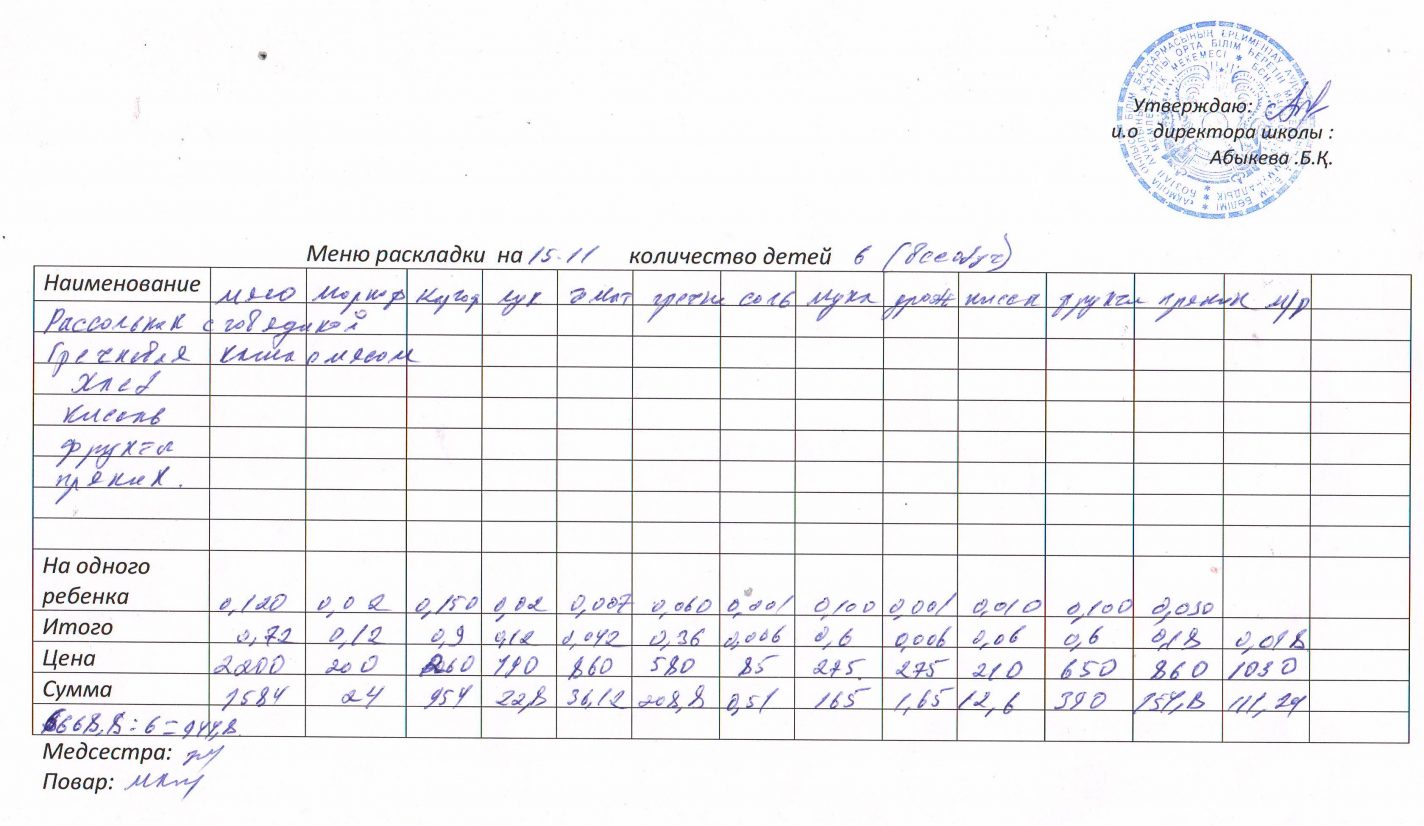 Утверждаю:
и.о директора школы :
Абыкева .Б.Қ.
Меню раскладки на 15.11 количество детей 6 (всеобуч)
Наименование мясо морков картоф лук томат гречне соль мука дрож кисел фрукты пряник м/р
Рассольник с говядиной
Гречневая каша с мясом
Хлеб
Кисель
фрукты
пряник.
На одного
ребенка 0,120 0,02 0,150 0,02 0,007 0,060 0,001 0,100 0,001 0,010 0,100 0,030
Итого 0,72 0,12 0,9 0,12 0,042 0,36 0,006 0,6 0,006 0,06 0,6 0,18 0,018
Цена 2200 200 190 860 580 85 275 275 210 650 860 1030
Сумма 1584 24 22,8 36,12 208,8 0,51 165 1,65 12,6 390 154,8
Медсестра:
Повар: